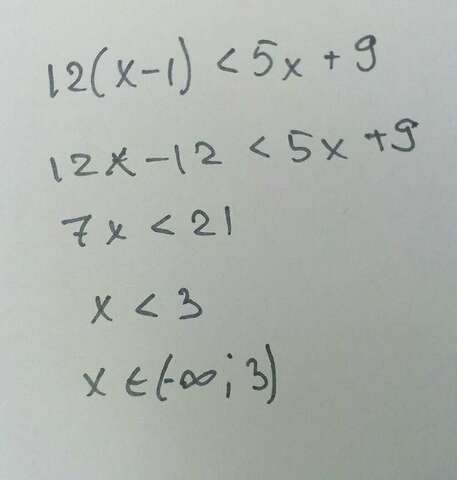 12(x-1) < 5x + 9
12x - 12 < 5x + 9
7x < 21
x < 3
x ∈ (-∞; 3)